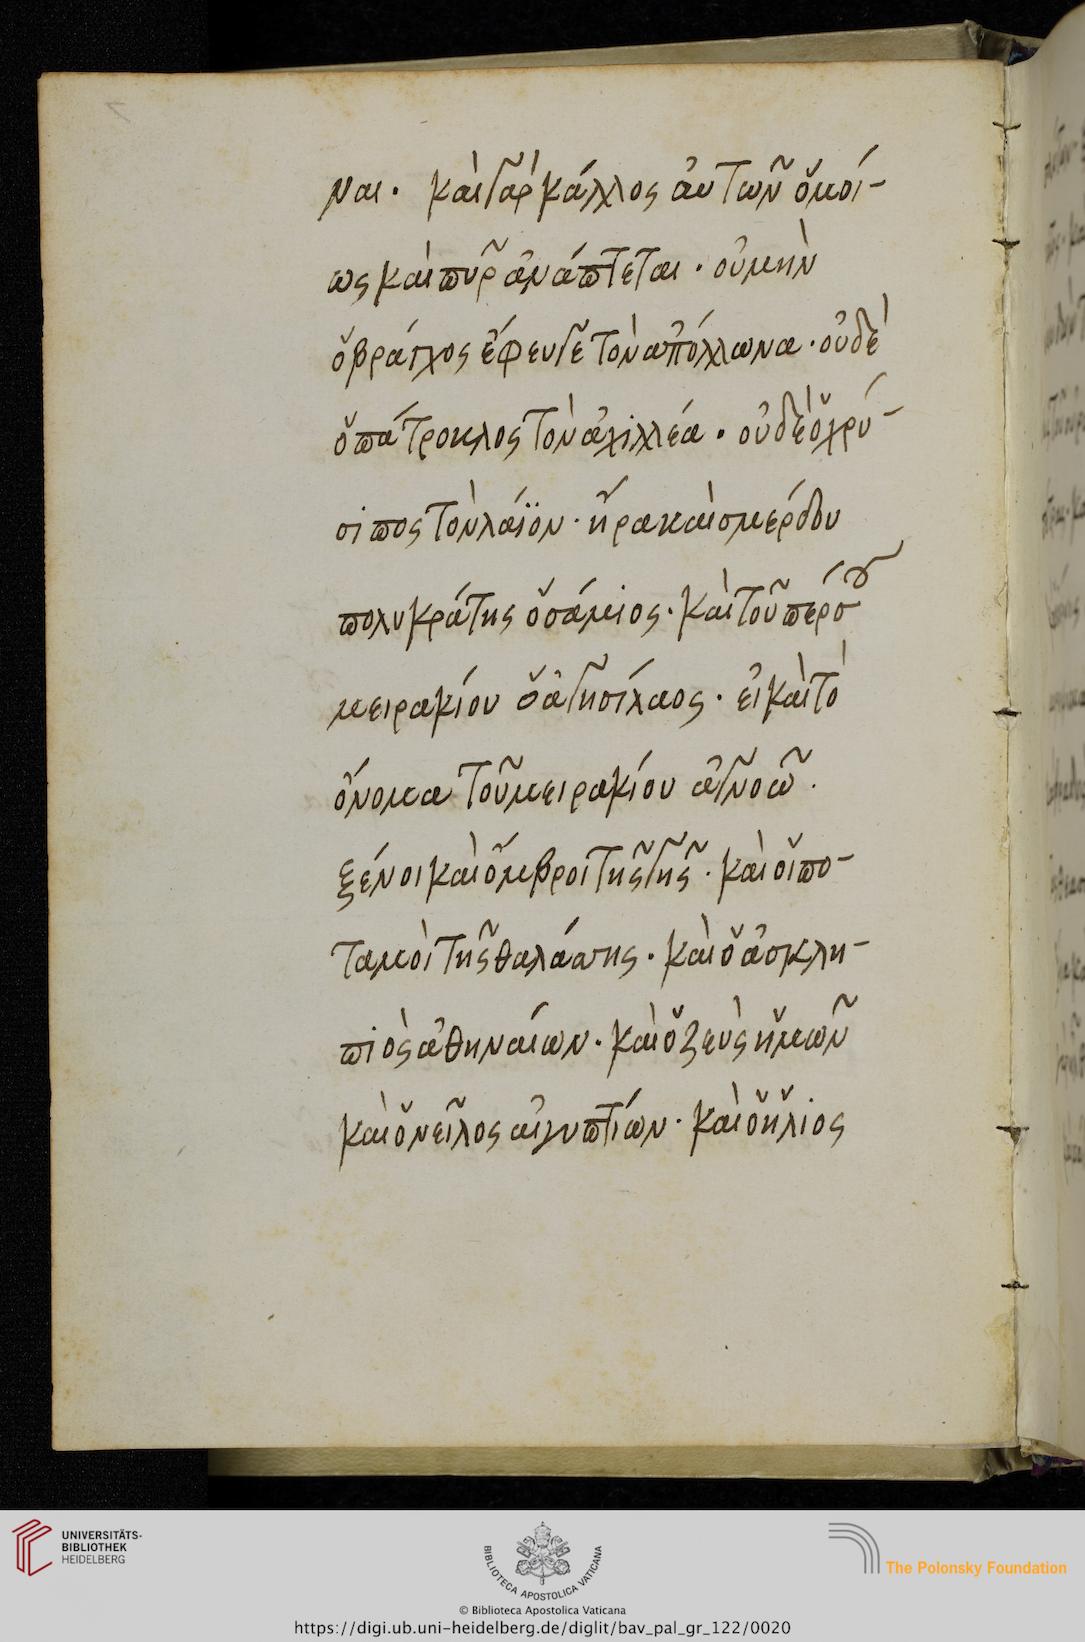 ναι. καὶ γὰρ κάλλος αὐτῶν ὁμοί-
ως καὶ πῦρ ἀνάπτεται. οὐ μὴν
ὁ βράγχος ἔφευγε τὸν ἀπόλλωνα. οὐδὲ
ὁ πάτροκλος τὸν ἀχιλλέα. οὐδὲ ὁ χρύ-
σιπος τὸν λάϊον. ἤρα καὶ σμερδου
πολυκράτης ὁ σάμιος. καὶ τοῦ πέρσου
μειρακίου ὁ ἀγησίλαος. εἰ καὶ τὸ
ὄνομα τοῦ μειρακίου ἀγνοῶ.
ξένοι καὶ ὄμβροι τῆς γῆς. καὶ οἱ πο-
ταμοὶ τῆς θαλάττης. καὶ ὁ ἀσκλη-
πιὸς ἀθηναίων. καὶ ὁ ζεὺς ἡμῶν
καὶ ὁ νεῖλος αἰγυπτίων. καὶ ὁ ἥλιος
UNIVERSITÄTS-
BIBLIOTHEK
HEIDELBERG
BIBLIOTECA APOSTOLICA VATICANA
The Polonsky Foundation
© Biblioteca Apostolica Vaticana
https://digi.ub.uni-heidelberg.de/diglit/bav_pal_gr_122/0020